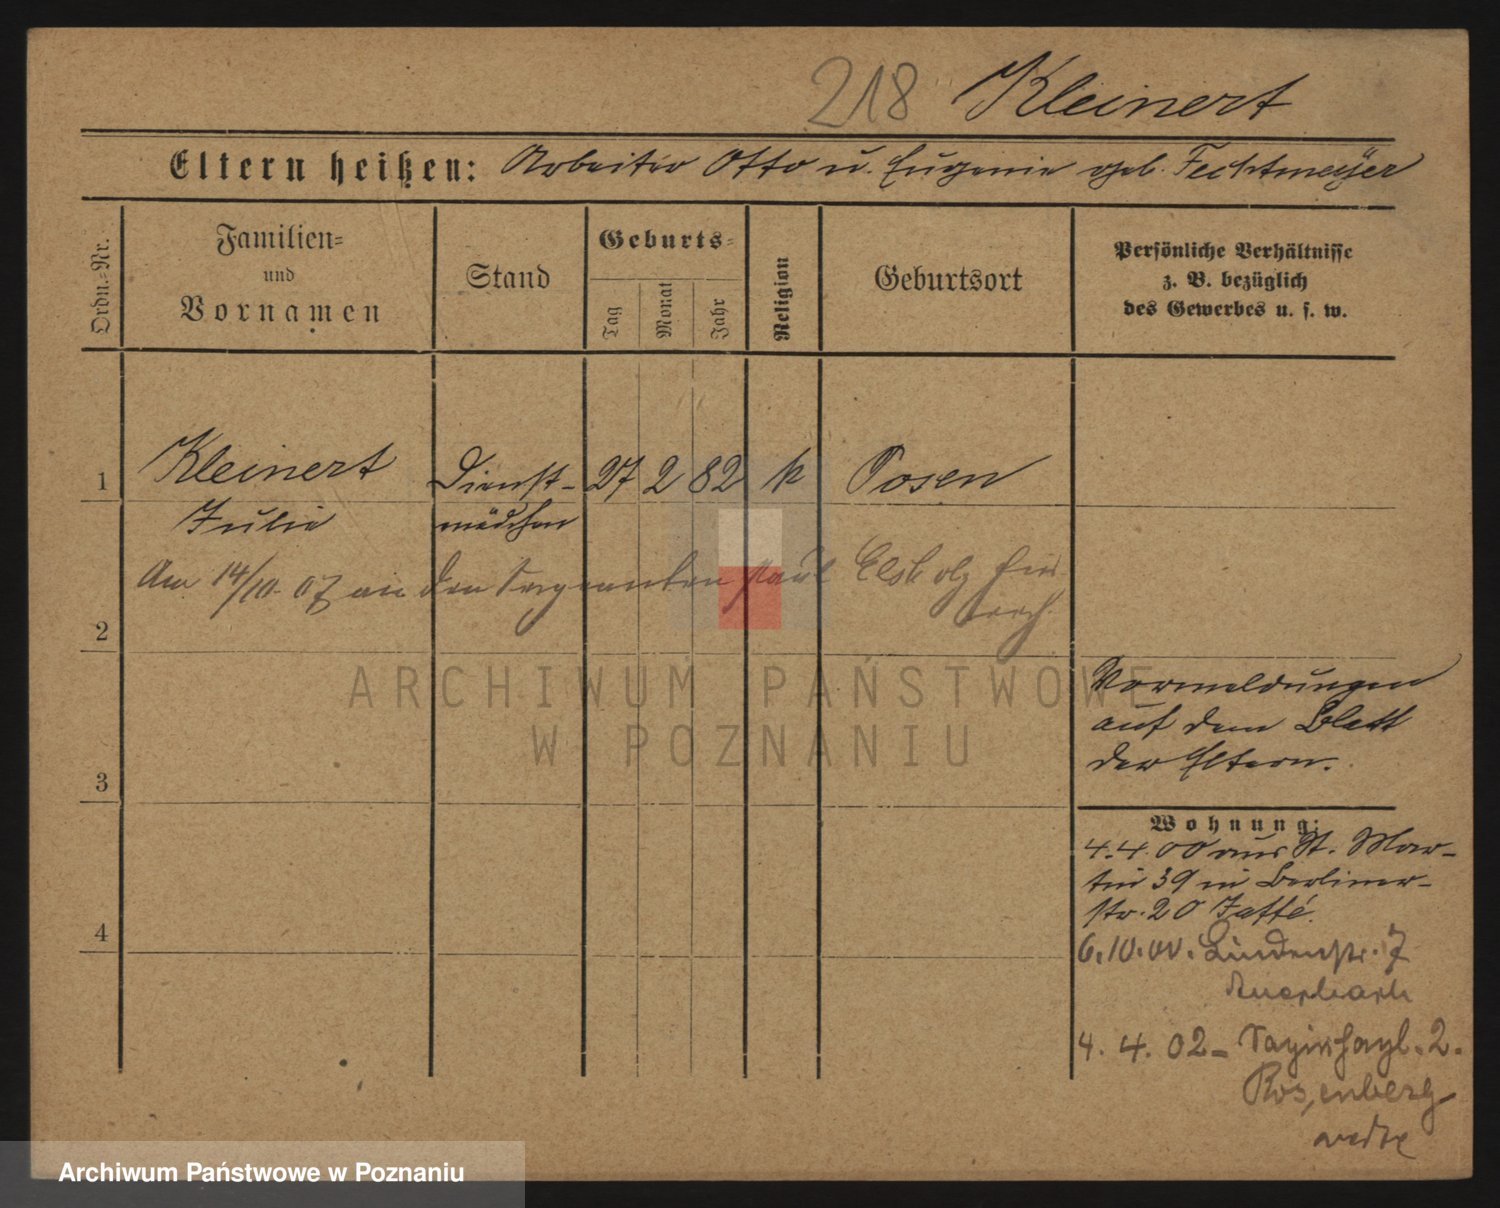 218 Kleinert
Eltern heißen: Arbeiter Otto u. Eugenie geb. Fechtmeyer
Ordn.-Nr.
Familien-
und
Vornamen
Stand
Geburts-
Tag
Monat
Jahr
Religion
Geburtsort
Persönliche Verhältnisse
z. B. bezüglich
des Gewerbes u. s. w.
1 Kleinert Dienst- 27 2 82 k Posen
Julie mädchen
Am 14/10. 07 an den Sergeanten Paul Elsholz hier
verh.
2
Vormeldungen
auf dem Blatt
der Eltern.
3
Wohnung:
4. 4. 00 aus St. Mar-
tin 39 in Berliner-
str. 20 Jaffé.
4
6. 10. 00. Lindenstr. 7
Auerbach
4. 4. 02 - Sapiehapl. 2.
Rosenberg
ARCHIWUM PAŃSTWOWE
W POZNANIU
Archiwum Państwowe w Poznaniu